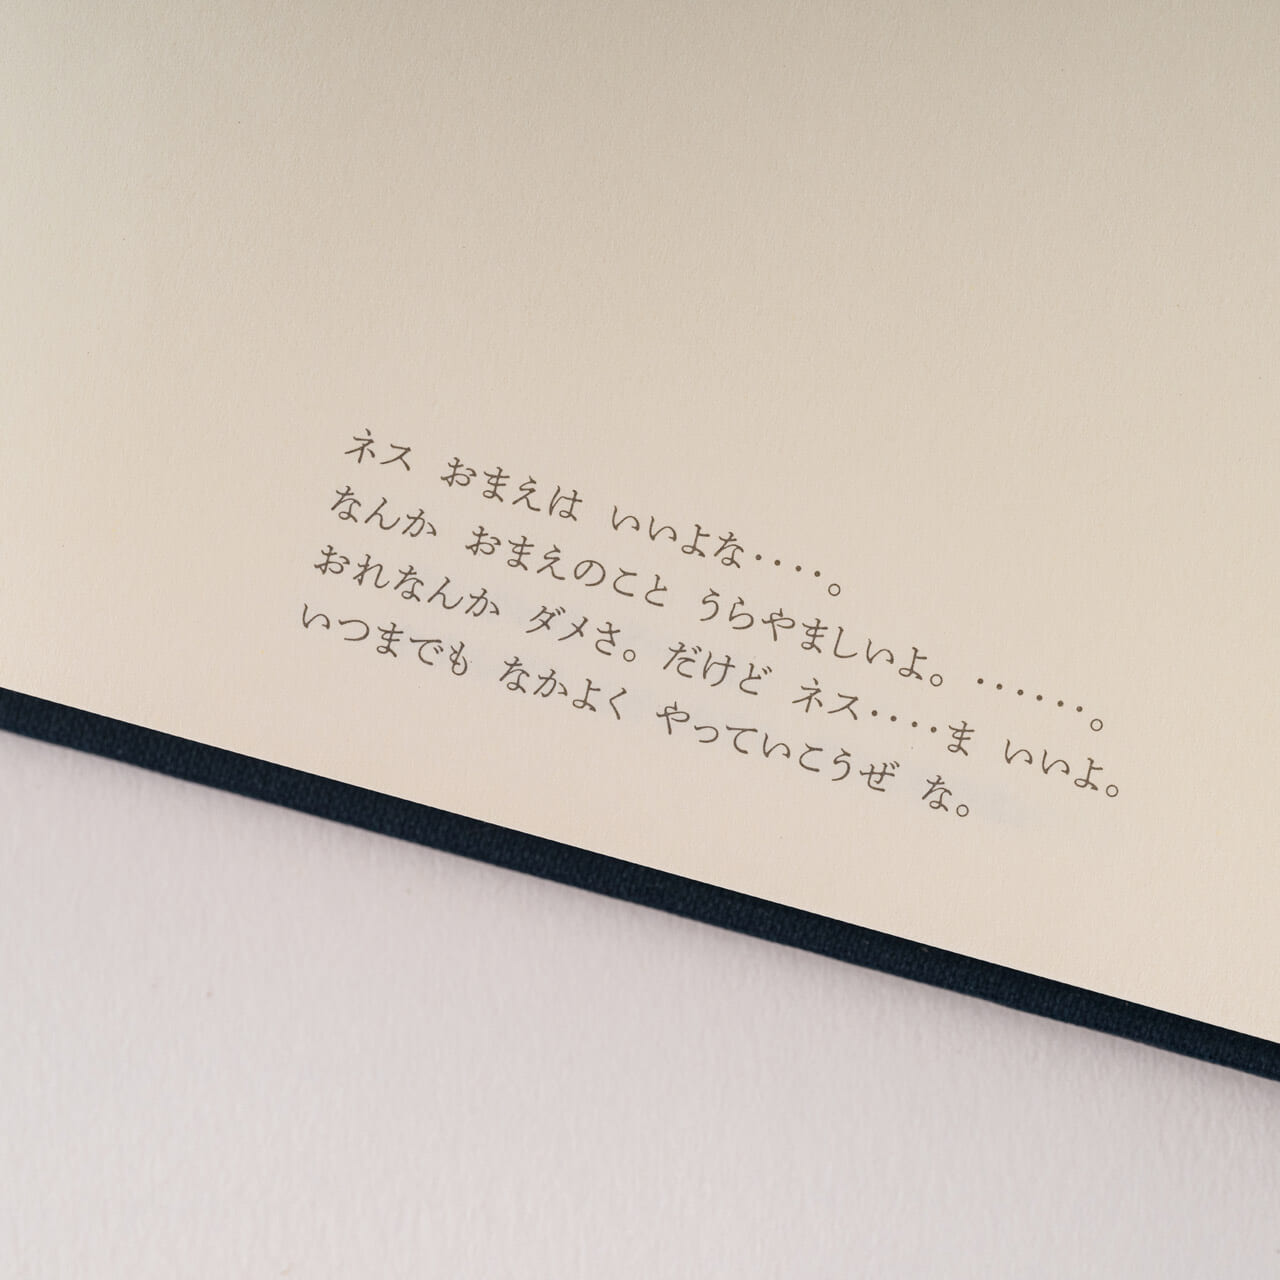 ネス　おまえは　いいよな‥‥。
なんか　おまえのこと　うらやましいよ。‥‥‥。
おれなんか　ダメさ。だけど　ネス‥‥ま　いいよ。
いつまでも　なかよく　やっていこうぜ　な。